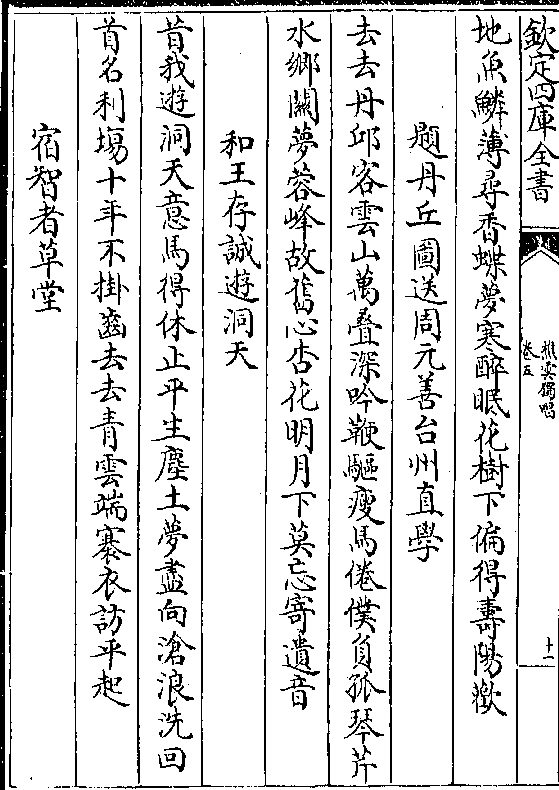 欽定四庫全書
樵雲獨唱
卷五
十一
地魚鱗薄尋香蝶夢寒醉眠花樹下偏得壽陽歡
題丹丘圖送周元善台州直學
去去丹邱客雲山萬叠深吟鞭驅瘦馬倦僕負孤琴芹
水鄉關夢蓉峰故舊心杏花明月下莫忘寄遺音
和王存誠遊洞天
昔我遊洞天意馬得休止平生塵土夢盡向滄浪洗回
首名利塲十年不掛齒去去青雲端褰衣訪平起
宿智者草堂